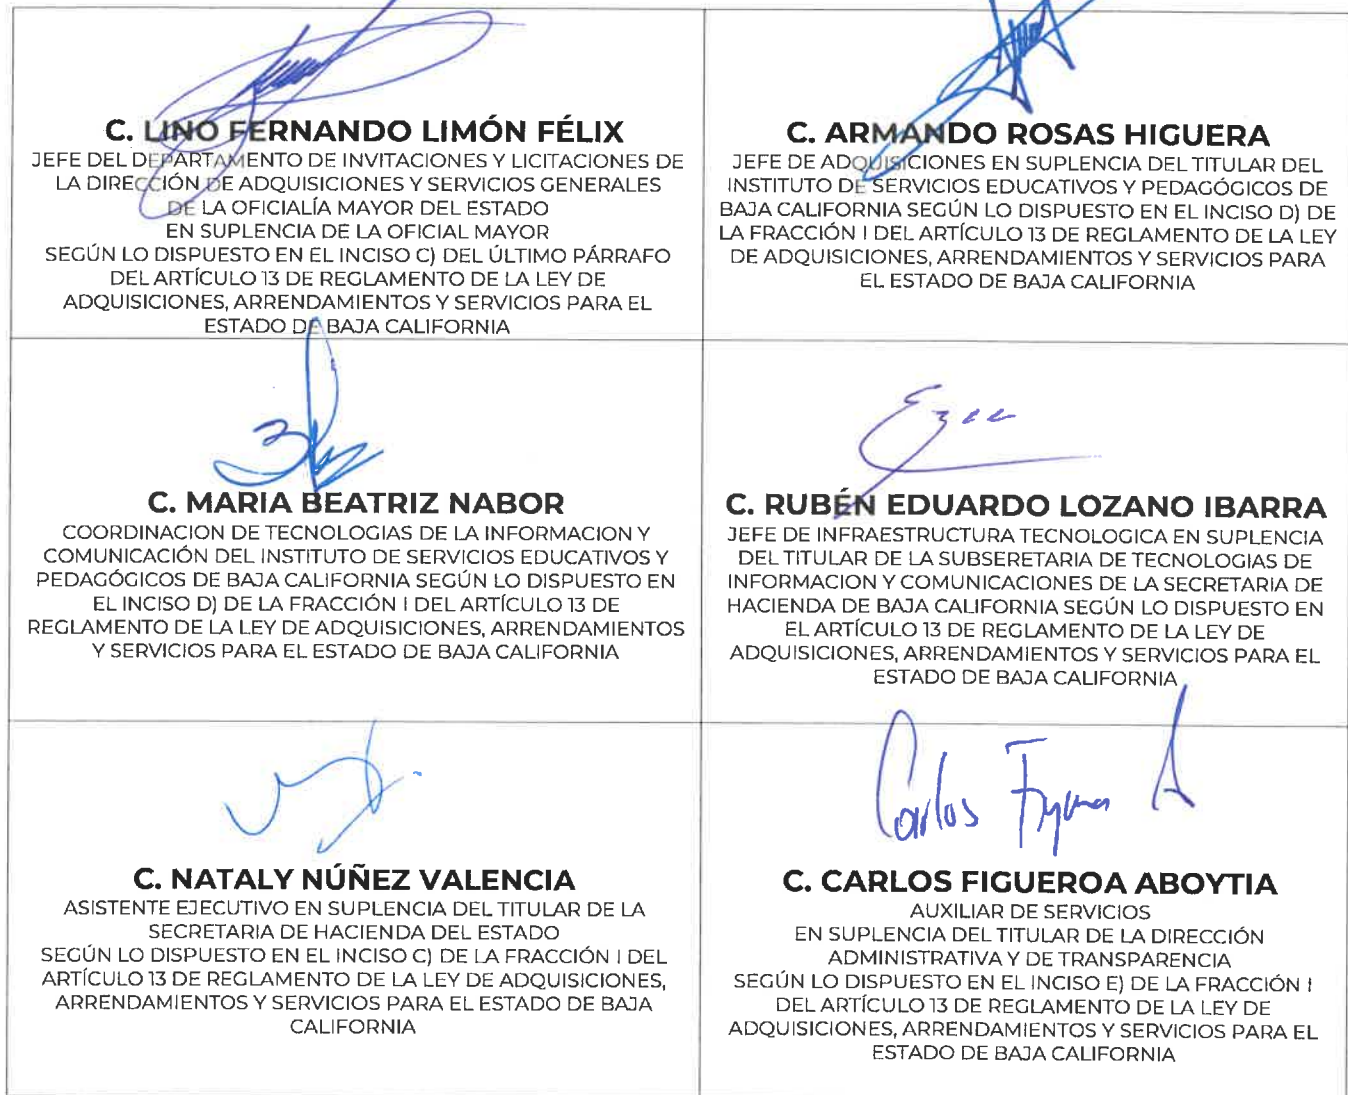 C. LINO FERNANDO LIMÓN FÉLIX
JEFE DEL DEPARTAMENTO DE INVITACIONES Y LICITACIONES DE
LA DIRECCIÓN DE ADQUISICIONES Y SERVICIOS GENERALES
DE LA OFICIALÍA MAYOR DEL ESTADO
EN SUPLENCIA DE LA OFICIAL MAYOR
SEGÚN LO DISPUESTO EN EL INCISO C) DEL ÚLTIMO PÁRRAFO
DEL ARTÍCULO 13 DE REGLAMENTO DE LA LEY DE
ADQUISICIONES, ARRENDAMIENTOS Y SERVICIOS PARA EL
ESTADO DE BAJA CALIFORNIA
C. ARMANDO ROSAS HIGUERA
JEFE DE ADQUISICIONES EN SUPLENCIA DEL TITULAR DEL
INSTITUTO DE SERVICIOS EDUCATIVOS Y PEDAGÓGICOS DE
BAJA CALIFORNIA SEGÚN LO DISPUESTO EN EL INCISO D) DE
LA FRACCIÓN I DEL ARTÍCULO 13 DE REGLAMENTO DE LA LEY
DE ADQUISICIONES, ARRENDAMIENTOS Y SERVICIOS PARA
EL ESTADO DE BAJA CALIFORNIA
C. MARIA BEATRIZ NABOR
COORDINACION DE TECNOLOGIAS DE LA INFORMACION Y
COMUNICACIÓN DEL INSTITUTO DE SERVICIOS EDUCATIVOS Y
PEDAGÓGICOS DE BAJA CALIFORNIA SEGÚN LO DISPUESTO EN
EL INCISO D) DE LA FRACCIÓN I DEL ARTÍCULO 13 DE
REGLAMENTO DE LA LEY DE ADQUISICIONES, ARRENDAMIENTOS
Y SERVICIOS PARA EL ESTADO DE BAJA CALIFORNIA
C. RUBÉN EDUARDO LOZANO IBARRA
JEFE DE INFRAESTRUCTURA TECNOLOGICA EN SUPLENCIA
DEL TITULAR DE LA SUBSERETARIA DE TECNOLOGIAS DE
INFORMACION Y COMUNICACIONES DE LA SECRETARIA DE
HACIENDA DE BAJA CALIFORNIA SEGÚN LO DISPUESTO EN
EL ARTÍCULO 13 DE REGLAMENTO DE LA LEY DE
ADQUISICIONES, ARRENDAMIENTOS Y SERVICIOS PARA EL
ESTADO DE BAJA CALIFORNIA
C. NATALY NÚÑEZ VALENCIA
ASISTENTE EJECUTIVO EN SUPLENCIA DEL TITULAR DE LA
SECRETARIA DE HACIENDA DEL ESTADO
SEGÚN LO DISPUESTO EN EL INCISO C) DE LA FRACCIÓN I DEL
ARTÍCULO 13 DE REGLAMENTO DE LA LEY DE ADQUISICIONES,
ARRENDAMIENTOS Y SERVICIOS PARA EL ESTADO DE BAJA
CALIFORNIA
Carlos Figueroa A
C. CARLOS FIGUEROA ABOYTIA
AUXILIAR DE SERVICIOS
EN SUPLENCIA DEL TITULAR DE LA DIRECCIÓN
ADMINISTRATIVA Y DE TRANSPARENCIA
SEGÚN LO DISPUESTO EN EL INCISO E) DE LA FRACCIÓN I
DEL ARTÍCULO 13 DE REGLAMENTO DE LA LEY DE
ADQUISICIONES, ARRENDAMIENTOS Y SERVICIOS PARA EL
ESTADO DE BAJA CALIFORNIA